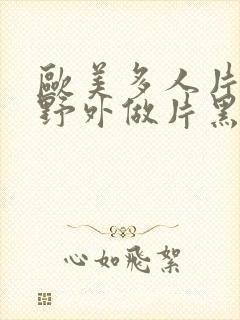 歐美多人片
野外做片黑
心如飛絮